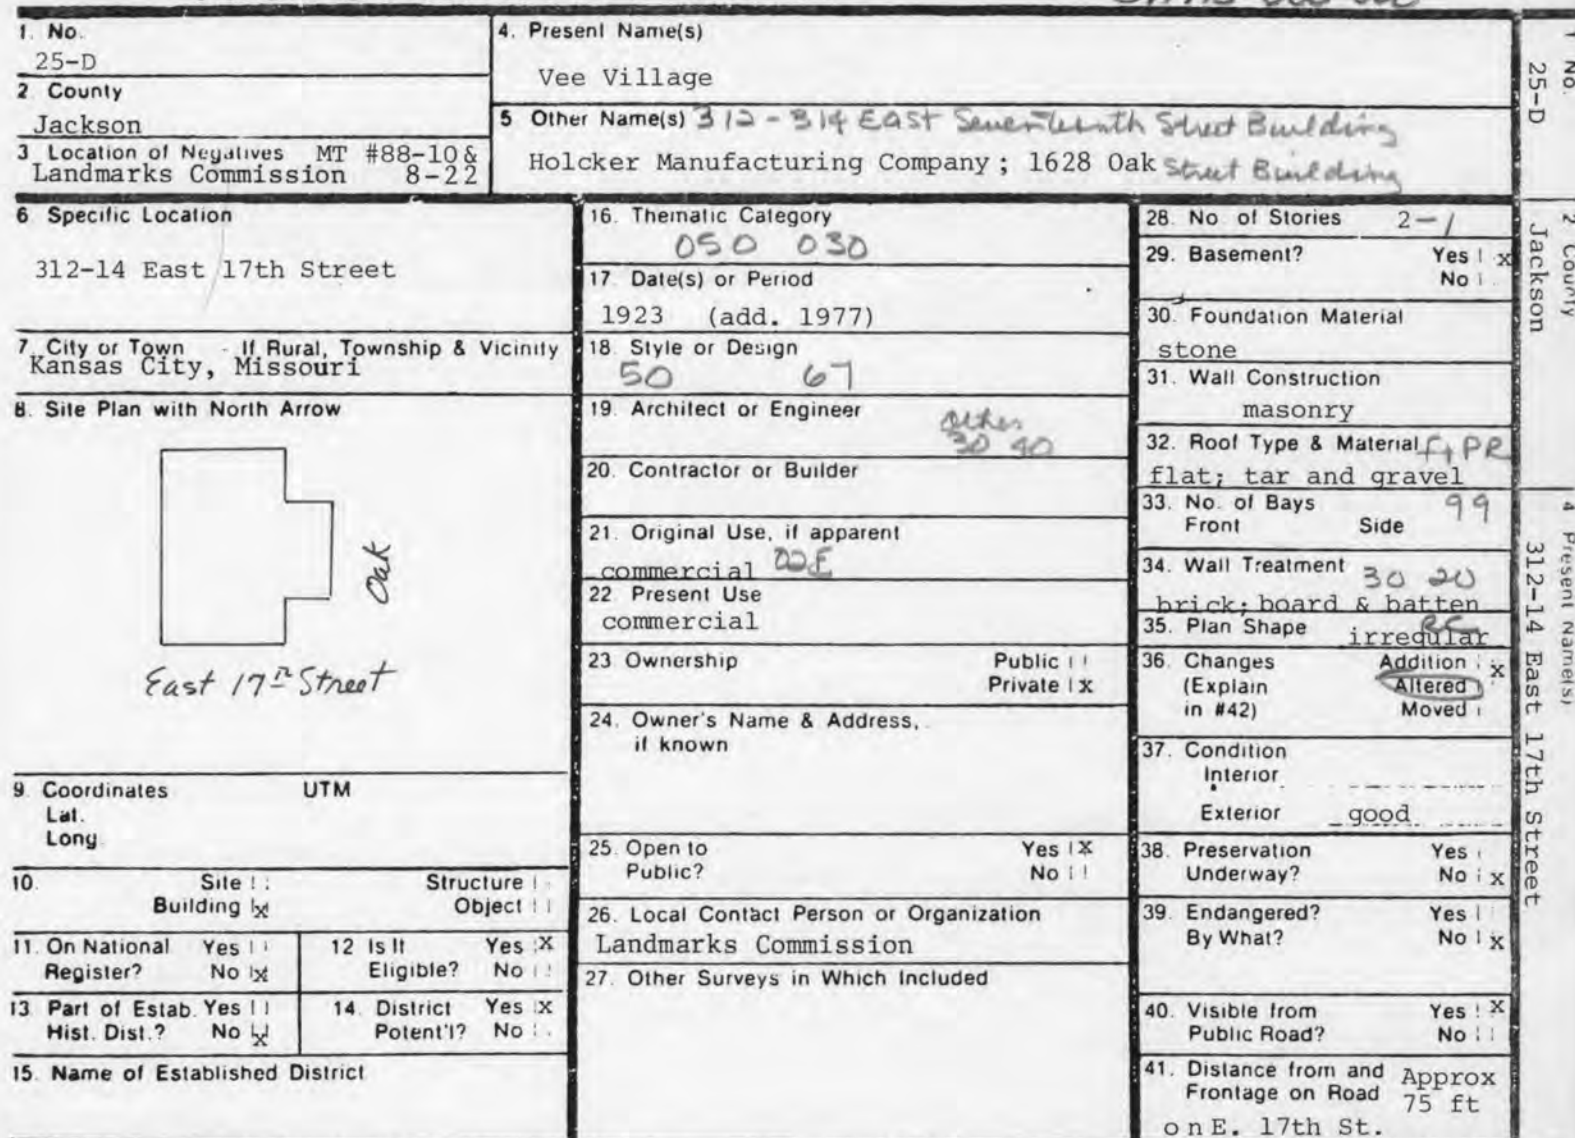 1. No.
25-D
2 County
Jackson
3 Location of Negatives MT #88-10&
Landmarks Commission 8-22
4. Present Name(s)
Vee Village
5 Other Name(s) 312-314 East Seventeenth Street Building
Holcker Manufacturing Company; 1628 Oak Street Building
6 Specific Location
312-14 East 17th Street
7. City or Town - If Rural, Township & Vicinity
Kansas City, Missouri
8. Site Plan with North Arrow
Oak
East 17th Street
9. Coordinates UTM
Lat.
Long.
10. Site
Structure
Building x
Object
11. On National Yes
Register? No x
12 Is It Yes X
Eligible? No
13 Part of Estab. Yes
Hist. Dist.? No x
14. District Yes X
Potent'l? No
15. Name of Established District
16. Thematic Category
050 030
17. Date(s) or Period
1923 (add. 1977)
18. Style or Design
50 67
19. Architect or Engineer
other
30 40
20. Contractor or Builder
21. Original Use, if apparent
commercial 02E
22. Present Use
commercial
23 Ownership Public
Private x
24. Owner's Name & Address,
if known
25. Open to Yes X
Public? No
26. Local Contact Person or Organization
Landmarks Commission
27. Other Surveys in Which Included
28. No. of Stories 2-1
29. Basement? Yes x
No
30. Foundation Material
stone
31. Wall Construction
masonry
32. Roof Type & Material PR
flat; tar and gravel
33. No. of Bays 99
Front Side
34. Wall Treatment 30 20
brick; board & batten
35. Plan Shape irregular RC
36. Changes Addition x
(Explain Altered
in #42) Moved
37. Condition
Interior
Exterior good
38. Preservation Yes
Underway? No x
39. Endangered? Yes
By What? No x
40. Visible from Yes X
Public Road? No
41. Distance from and Approx
Frontage on Road 75 ft
on E. 17th St.
1 No.
25-D
2 County
Jackson
4 Present Name(s)
312-14 East 17th Street